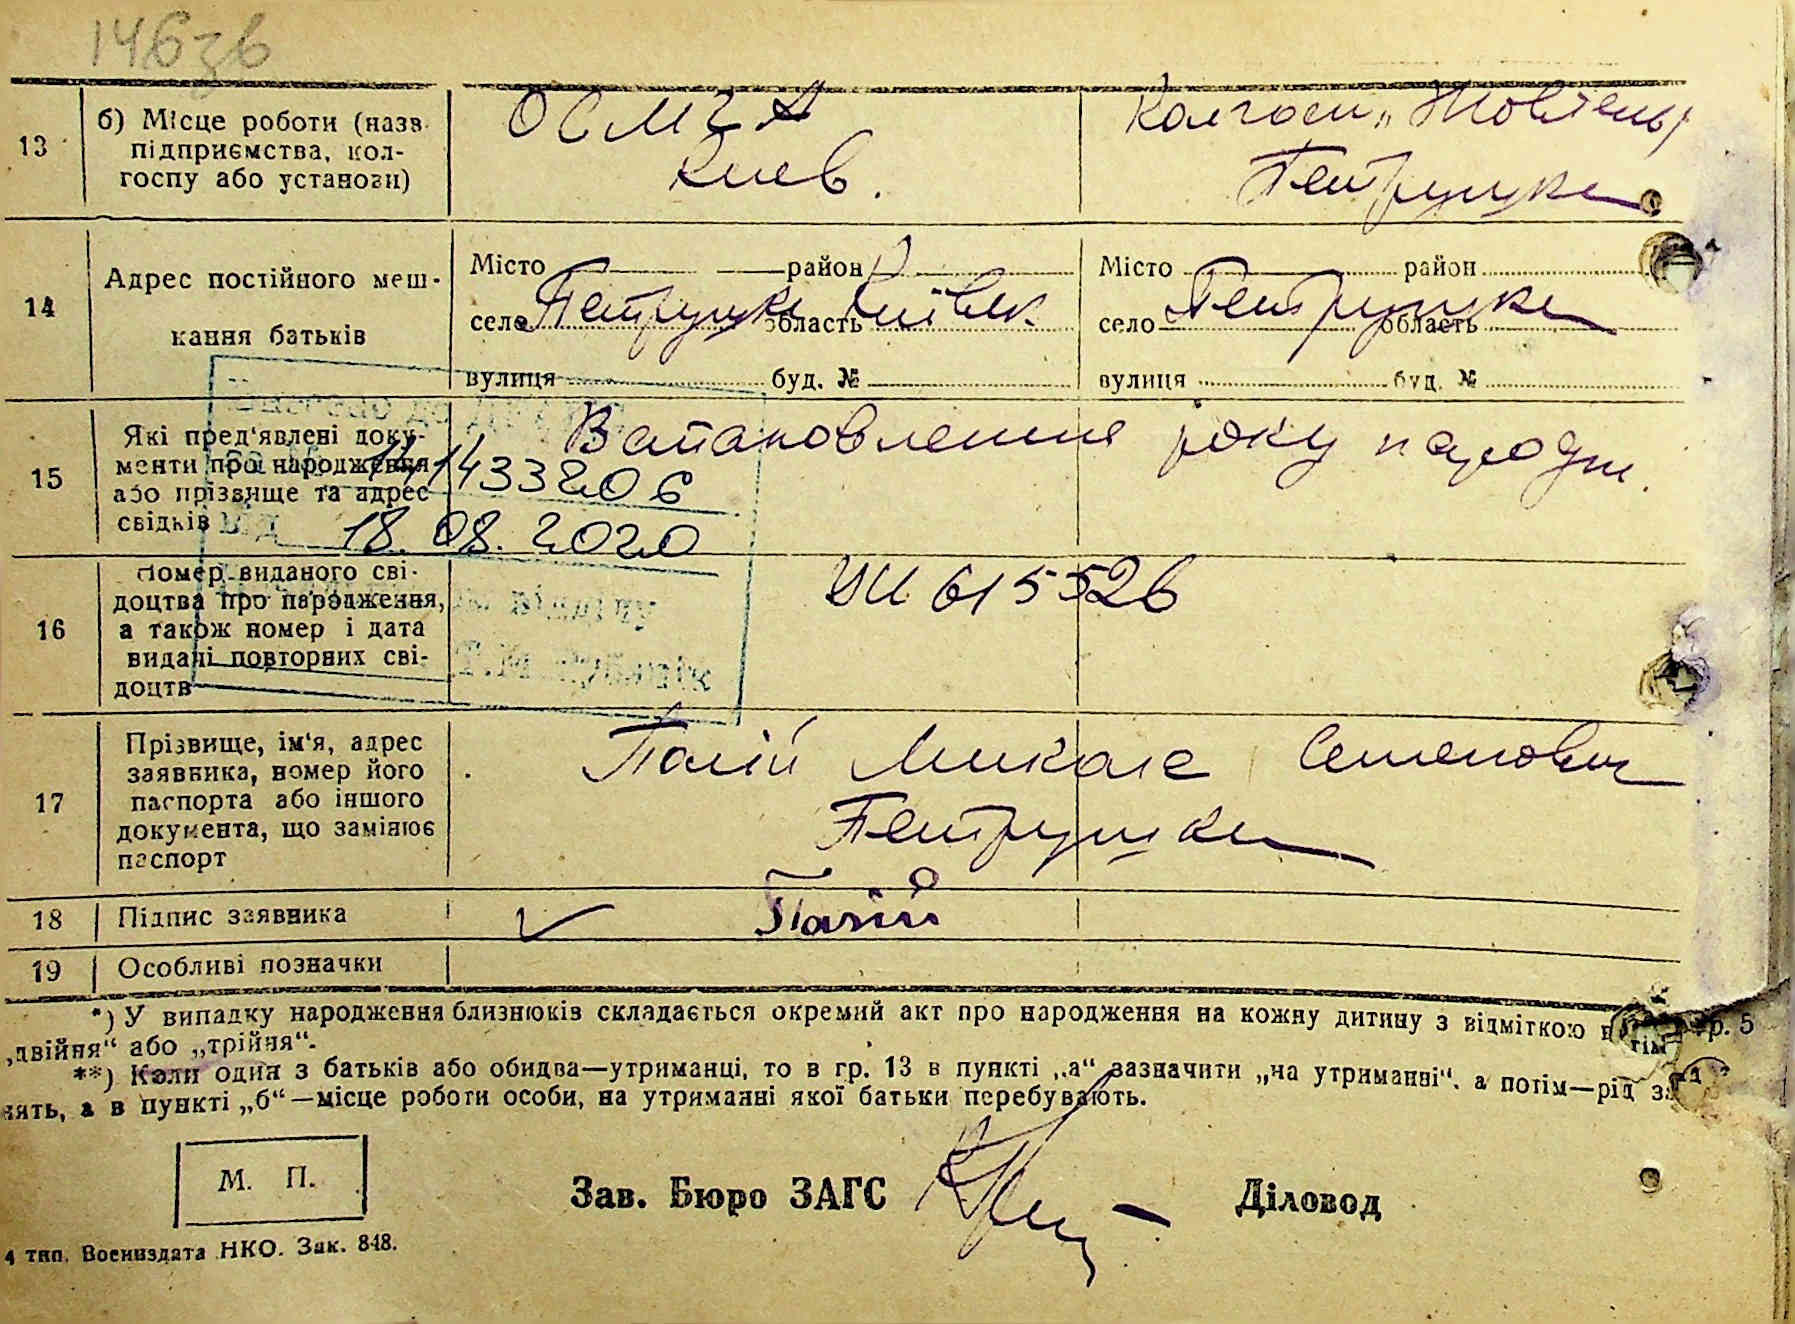 146зв
13 б) Місце роботи (назв підприємства, колгоспу або установи)
ОСМЧ
Киев.
Колгосп „Жовтень”
Петрушки
14 Адрес постійного мешкання батьків
Місто район
село Петрушки область Київськ
вулиця буд. №
Місто район
село Петрушки область
вулиця буд. №
15 Які пред'явлені документи про народження або прізвище та адрес свідків
Встановлення року народж.
141433206
від 18.08.2020
16 Номер виданого свідоцтва про народження, а також номер і дата видані повторних свідоцтв
615526
відділу
17 Прізвище, ім'я, адрес заявника, номер його паспорта або іншого документа, що замінює паспорт
Палій Микола Семенович
Петрушки
18 Підпис заявника
✓ Палій
19 Особливі позначки
*) У випадку народження близнюків складається окремий акт про народження на кожну дитину з відміткою в гр. 5
„двійня“ або „трійня“.
**) Коли один з батьків або обидва—утриманці, то в гр. 13 в пункті „а“ зазначити „на утриманні“, а потім—рід за
нять, а в пункті „б“—місце роботи особи, на утриманні якої батьки перебувають.
М. П.
Зав. Бюро ЗАГС
Діловод
4 тип. Воениздата НКО. Зак. 848.